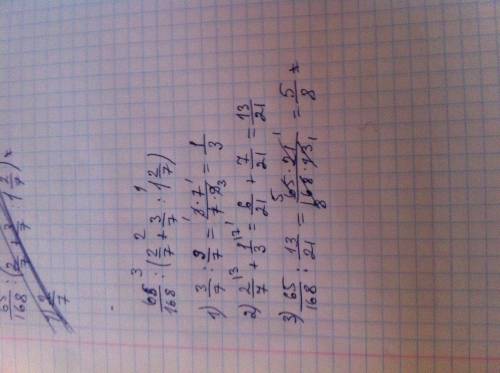 65/168 : (2/7 + 3/7 : 1 2/7) =
65/168 : (2/7 + 3/7 : 1 2/7)
1) 3/7 : 9/7 = 3·7/7·9 = 1/3
2) 2/7 + 1/3 = 6/21 + 7/21 = 13/21
3) 65/168 : 13/21 = 65·21/168·13 = 5/8